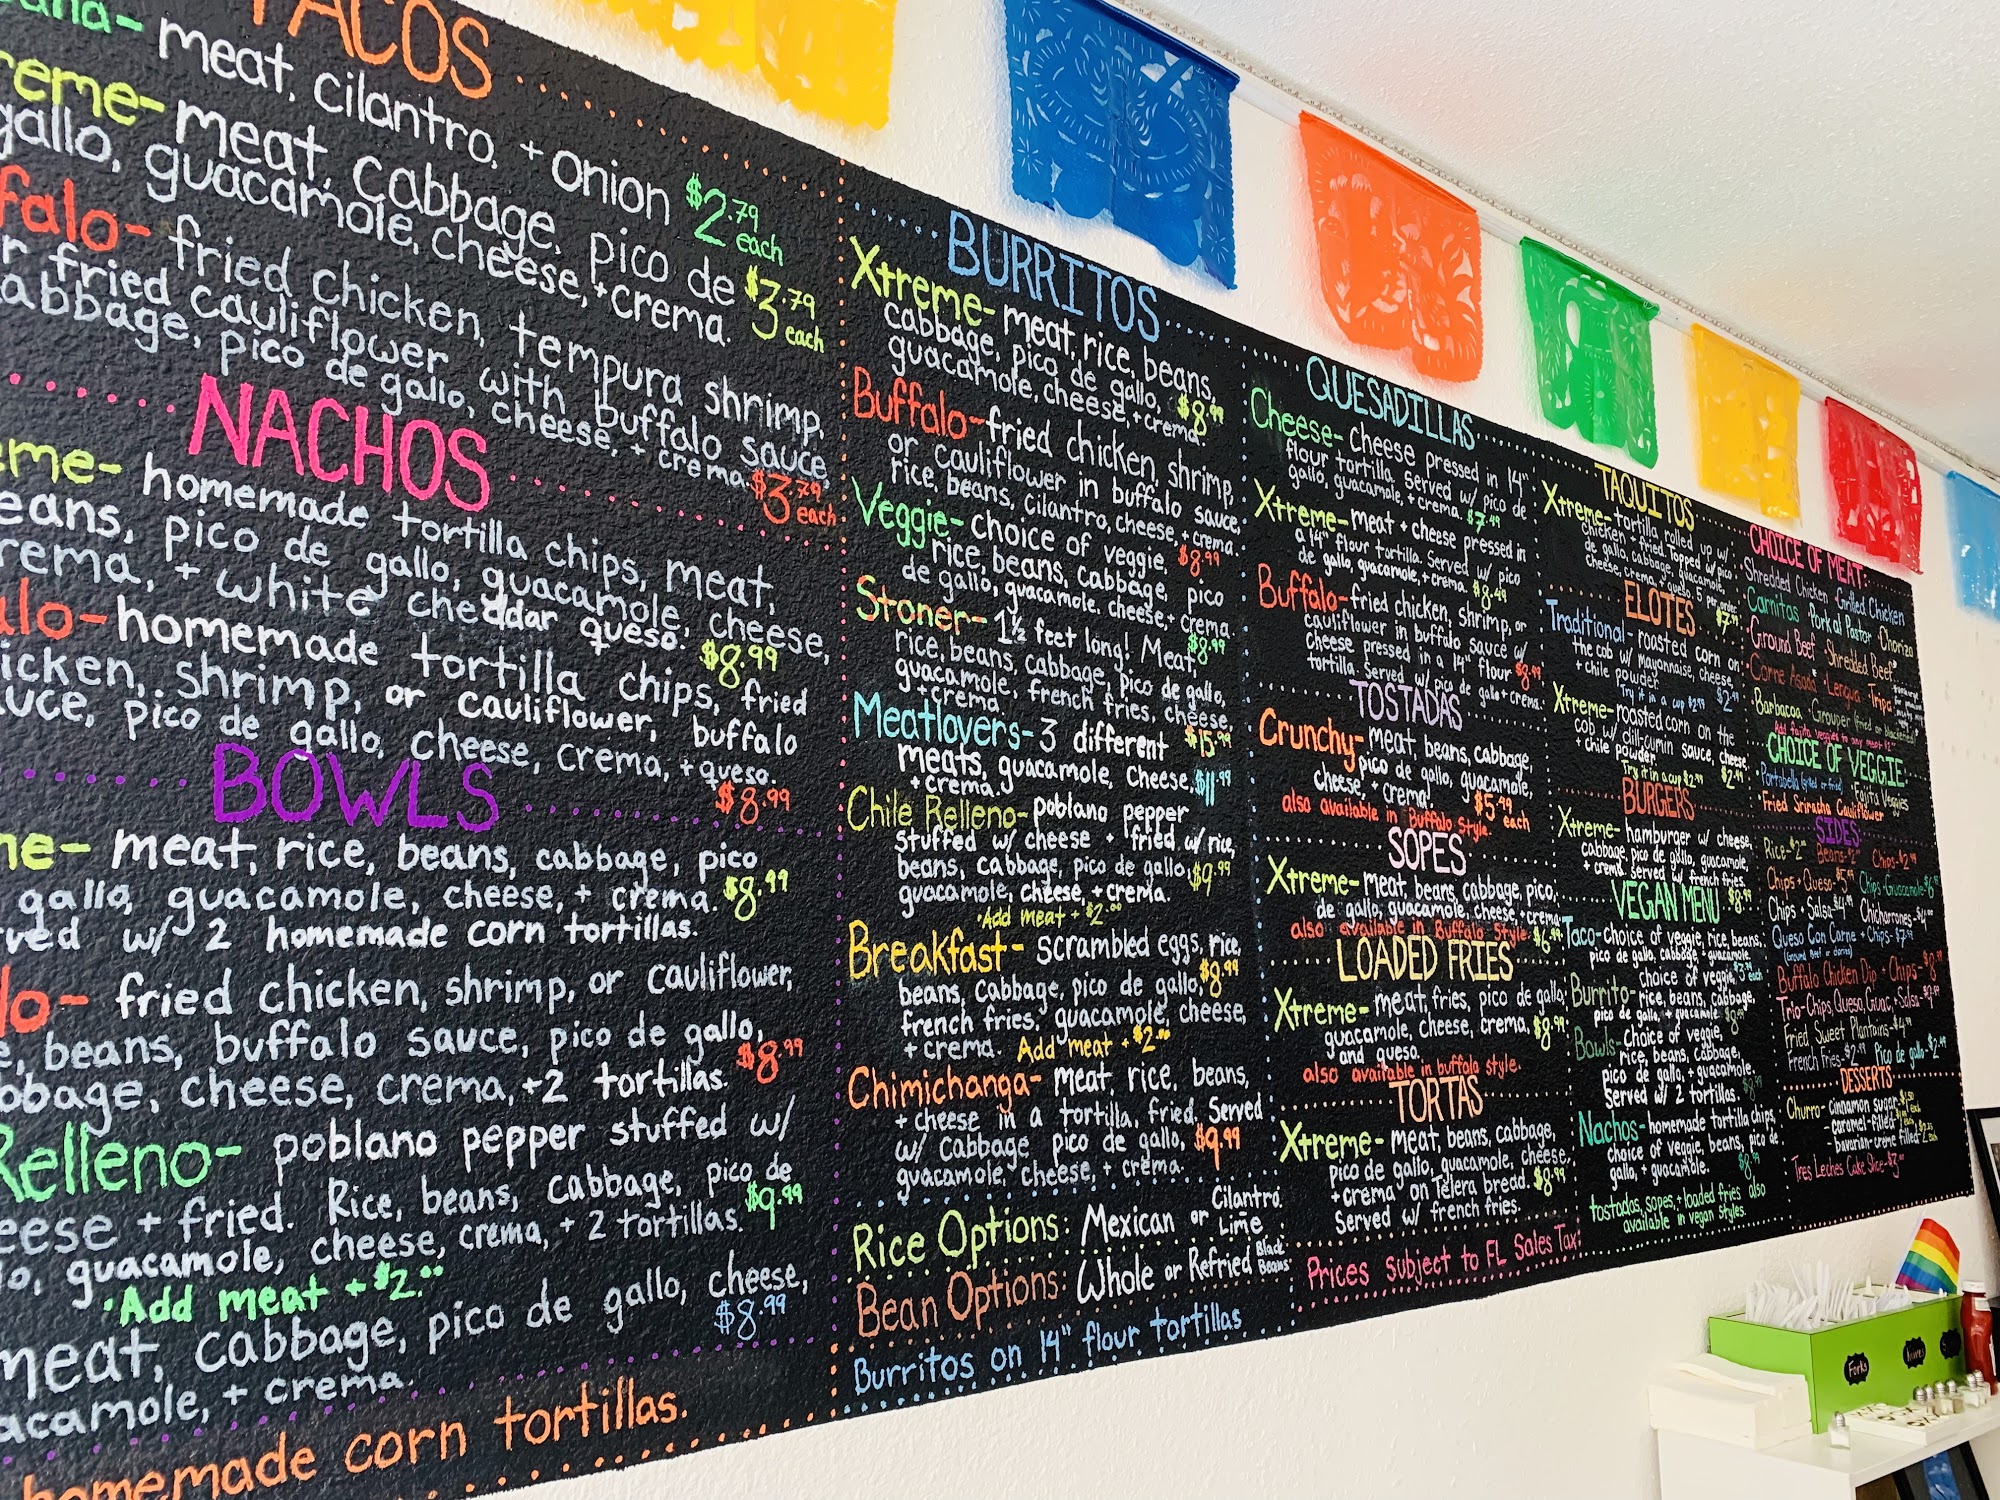 TACOS
meat, cilantro, + onion $2.79 each
reme- meat, cabbage, pico de
gallo, guacamole, cheese, + crema. $3.79 each
falo- fried chicken, tempura shrimp,
r fried cauliflower with buffalo sauce,
abbage, pico de gallo, cheese, + crema. $3.79 each
NACHOS
eme- homemade tortilla chips, meat,
eans, pico de gallo, guacamole, cheese,
rema, + white cheddar queso. $8.99
alo- homemade tortilla chips, fried
icken, shrimp, or cauliflower, buffalo
uce, pico de gallo, cheese, crema, + queso.
$8.99
BOWLS
me- meat, rice, beans, cabbage, pico
gallo, guacamole, cheese, + crema. $8.99
ved w/ 2 homemade corn tortillas.
lo- fried chicken, shrimp, or cauliflower,
e, beans, buffalo sauce, pico de gallo,
bbage, cheese, crema, +2 tortillas. $8.99
Relleno- poblano pepper stuffed w/
eese + fried. Rice, beans, cabbage, pico de
lo, guacamole, cheese, crema, + 2 tortillas. $9.99
Add meat + $2.00
meat, cabbage, pico de gallo, cheese,
acamole, + crema. $8.99
homemade corn tortillas.
BURRITOS
Xtreme- meat, rice, beans,
cabbage, pico de gallo,
guacamole, cheese, + crema. $8.99
Buffalo- fried chicken, shrimp,
or cauliflower in buffalo sauce,
rice, beans, cilantro, cheese, + crema.
$8.99
Veggie- choice of veggie,
rice, beans, cabbage, pico
de gallo, guacamole, cheese, + crema.
$8.99
Stoner- 1½ feet long! Meat,
rice, beans, cabbage, pico de gallo,
guacamole, french fries, cheese,
+ crema. $15.99
Meatlovers- 3 different
meats, guacamole, cheese,
+ crema. $11.99
Chile Relleno- poblano pepper
stuffed w/ cheese + fried w/ rice,
beans, cabbage, pico de gallo,
guacamole, cheese, + crema. $9.99
Add meat + $2.00
Breakfast- scrambled eggs, rice,
beans, cabbage, pico de gallo, $8.99
french fries, guacamole, cheese,
+ crema. Add meat + $2.00
Chimichanga- meat, rice, beans,
+ cheese in a tortilla, fried. Served
w/ cabbage pico de gallo, $9.99
guacamole, cheese, + crema.
Rice Options: Mexican or Cilantro Lime
Bean Options: Whole or Refried Black Beans
Burritos on 14" flour tortillas
QUESADILLAS
Cheese- cheese pressed in 14"
flour tortilla. Served w/ pico de
gallo, guacamole, + crema. $7.49
Xtreme- meat + cheese pressed in
a 14" flour tortilla. Served w/ pico
de gallo, guacamole, + crema. $8.49
Buffalo- fried chicken, shrimp, or
cauliflower in buffalo sauce w/
cheese pressed in a 14" flour
tortilla. Served w/ pico de gallo + crema. $8.99
TOSTADAS
Crunchy- meat, beans, cabbage,
pico de gallo, guacamole,
cheese, + crema. $5.99 each
also available in Buffalo Style.
SOPES
Xtreme- meat, beans, cabbage, pico
de gallo, guacamole, cheese, + crema.
also available in Buffalo Style.
LOADED FRIES
Xtreme- meat, fries, pico de gallo,
guacamole, cheese, crema, $8.99
and queso.
also available in buffalo style.
TORTAS
Xtreme- meat, beans, cabbage,
pico de gallo, guacamole, cheese,
+ crema on Telera bread. $8.99
Served w/ french fries.
Prices subject to FL Sales Tax!
TAQUITOS
Xtreme- tortilla rolled up w/
chicken + fried. Topped w/ pico
de gallo, cabbage, guacamole,
cheese, crema, + queso. 5 per order
ELOTES
Traditional- roasted corn on
the cob w/ mayonnaise, cheese,
+ chile powder.
Try it in a cup
Xtreme- roasted corn on the
cob w/ dill-cumin sauce, cheese,
+ chile powder
Try it in a cup $2.99
BURGERS
Xtreme- hamburger w/ cheese,
cabbage, pico de gallo, guacamole,
+ crema. Served w/ french fries.
$8.99
VEGAN MENU
Taco- choice of veggie, rice, beans,
pico de gallo, cabbage + guacamole.
Burrito- choice of veggie,
rice, beans, cabbage,
pico de gallo, + guacamole
Bowls- choice of veggie,
rice, beans, cabbage,
pico de gallo, + guacamole.
Served w/ 2 tortillas.
Nachos- homemade tortilla chips,
choice of veggie, beans, pico de
gallo, + guacamole.
tostadas, sopes, + loaded fries also
available in vegan styles.
CHOICE OF MEAT:
Shredded Chicken Grilled Chicken
Carnitas Pork al Pastor Chorizo
Ground Beef Shredded Beef
Carne Asada Lengua Tripa
Barbacoa Grouper (fried or blackened)
Add fajita veggies to any meat
CHOICE OF VEGGIE:
Portabella (grilled or fried) Fajita Veggies
Fried Sriracha Cauliflower
SIDES
Rice- Beans- Chips-
Chips + Queso- Chips + Guacamole-
Chips + Salsa- Chicharrones-
Queso Con Carne + Chips-
Buffalo Chicken Dip + Chips-
Trio- Chips, Queso, Guac, + Salsa-
Fried Sweet Plantains-
French Fries- $2.99 Pico de gallo-
DESSERTS
Churro- cinnamon sugar
caramel-filled
bavarian-creme filled
Tres Leches Cake Slice-
Forks